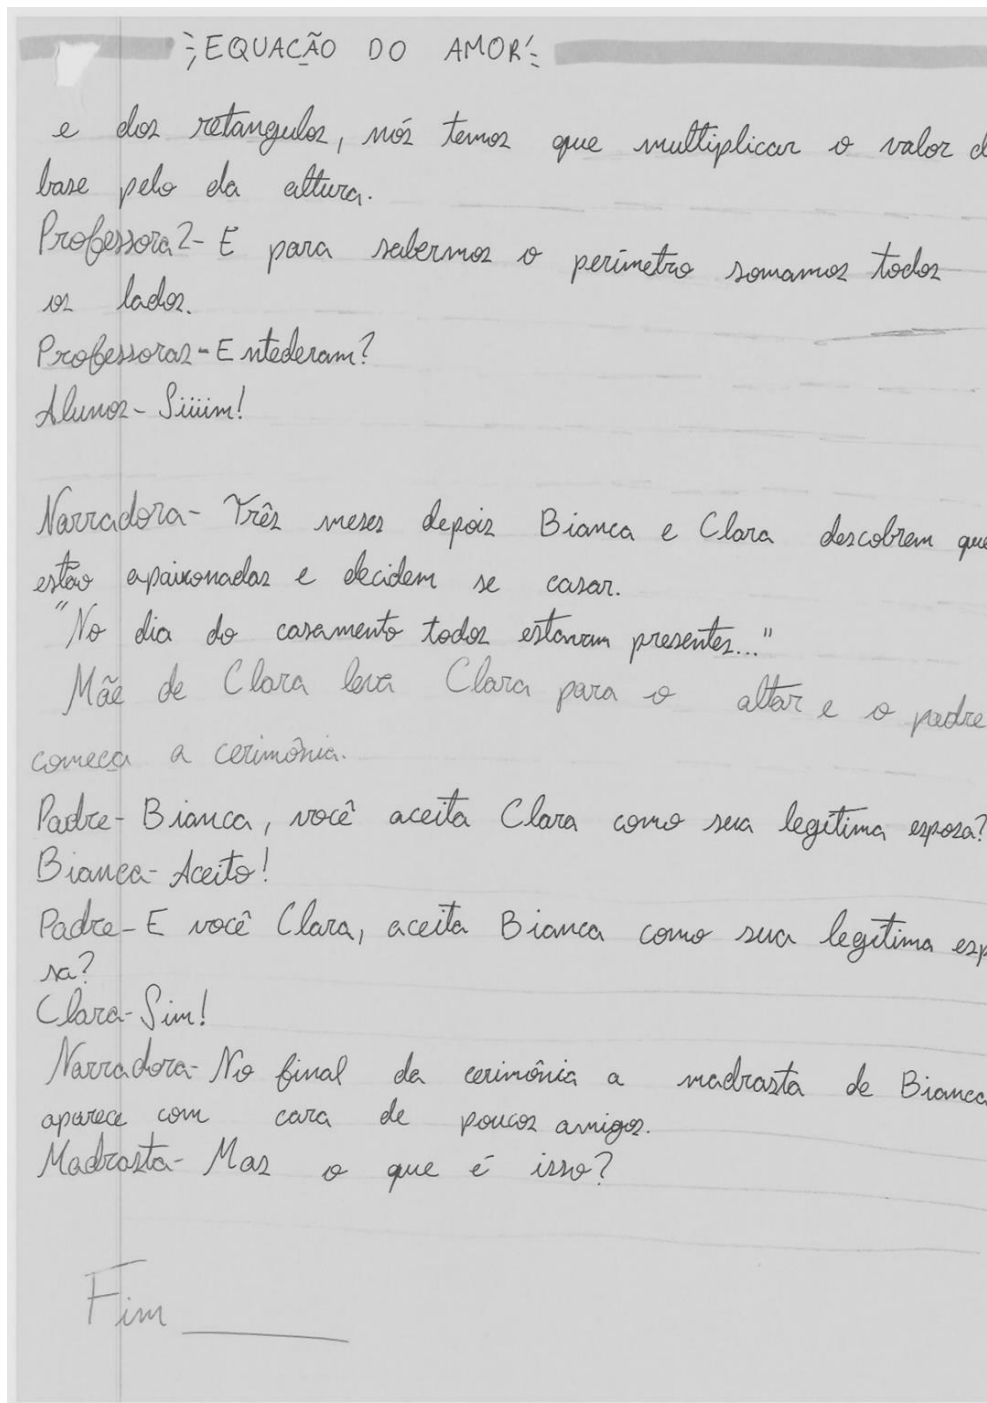 EQUAÇÃO DO AMOR
e dos retangulos, nós temos que multiplicar o valor d
base pelo da altura.
Professora 2- E para sabermos o perímetro somamos todos
os lados.
Professoras- Entederam?
Alunos- Siiiim!
Narradora- Três meses depois Bianca e Clara descobrem que
estão apaixonadas e decidem se casar.
"No dia do casamento todos estavam presentes..."
Mãe de Clara leva Clara para o altar e o padre
começa a cerimônia.
Padre- Bianca, você aceita Clara como sua legítima esposa?
Bianca- Aceito!
Padre- E você Clara, aceita Bianca como sua legítima esp
sa?
Clara- Sim!
Narradora- No final da cerimônia a madrasta de Bianca
aparece com cara de poucos amigos.
Madrasta- Mas o que é isso?
Fim